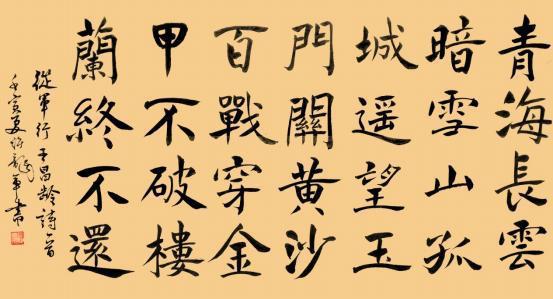 青海長雲
暗雪山孤
城遥望玉
門關黄沙
百戰穿金
甲不破樓
蘭終不還
從軍行王昌龄詩一首
壬寅夏書